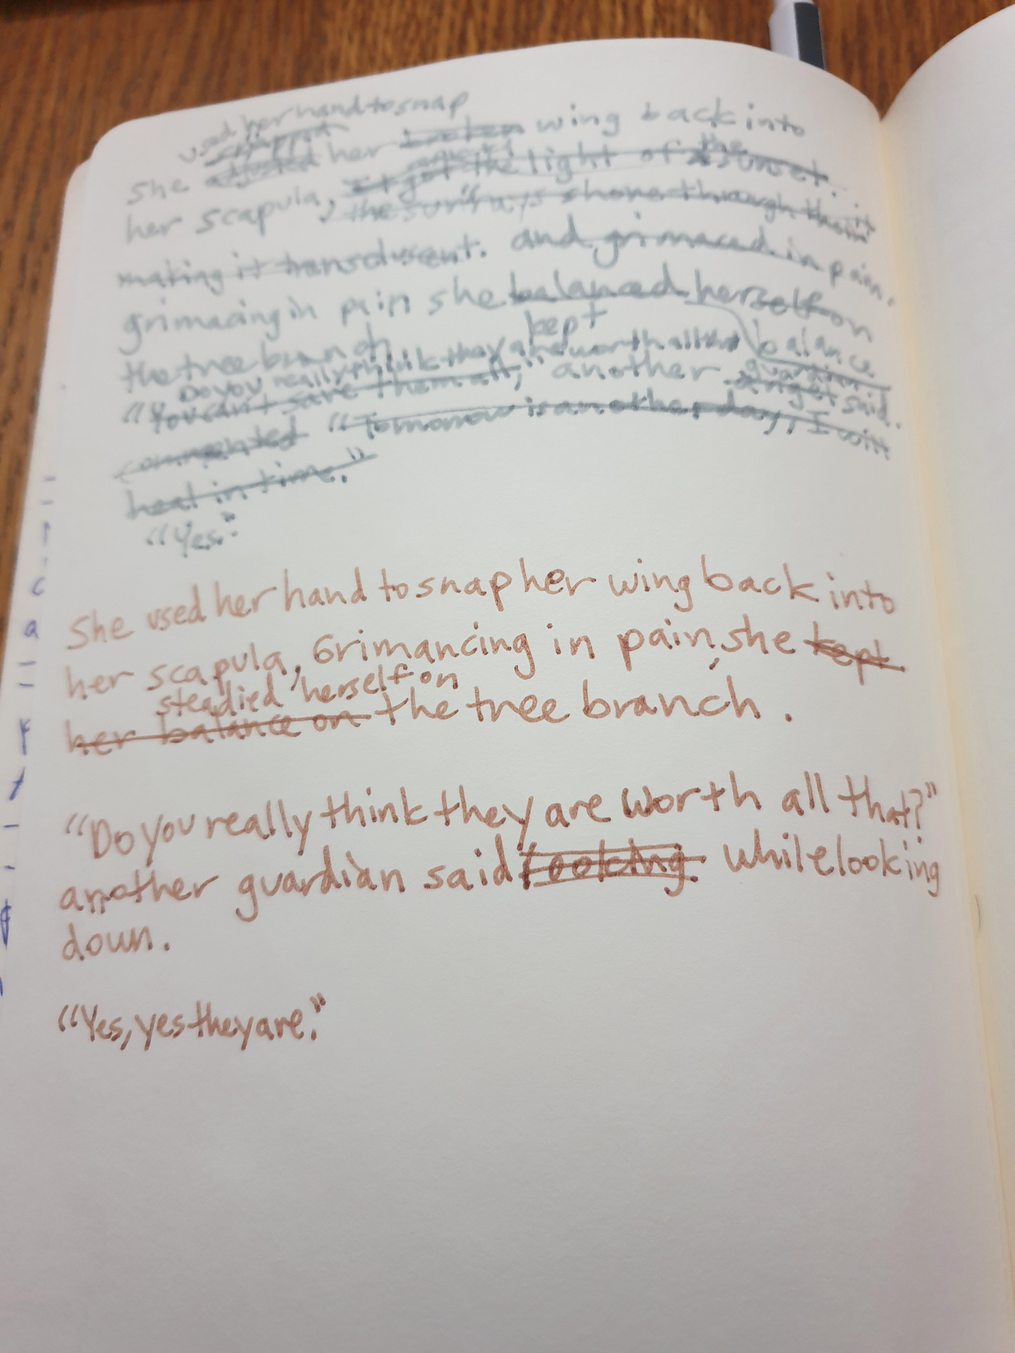 used her hand to snap
snapped
She adjusted her broken wing back into
her scapula, it got the light of the sunset.
the sun's rays shone through
making it translucent. and grimaced in pain.
grimacing in pain she balanced herself on
kept balance
the tree branch
Do you really think they are worth all that guardian
"You can't save them all," another angel said.
commented "Tomorrow is another day, I will
heal in time."
"Yes."
She used her hand to snap her wing back into
her scapula, Grimancing in pain, she kept
steadied herself on
her balance on the tree branch.
"Do you really think they are worth all that?"
another guardian said looking. while looking
down.
"Yes, yes they are."